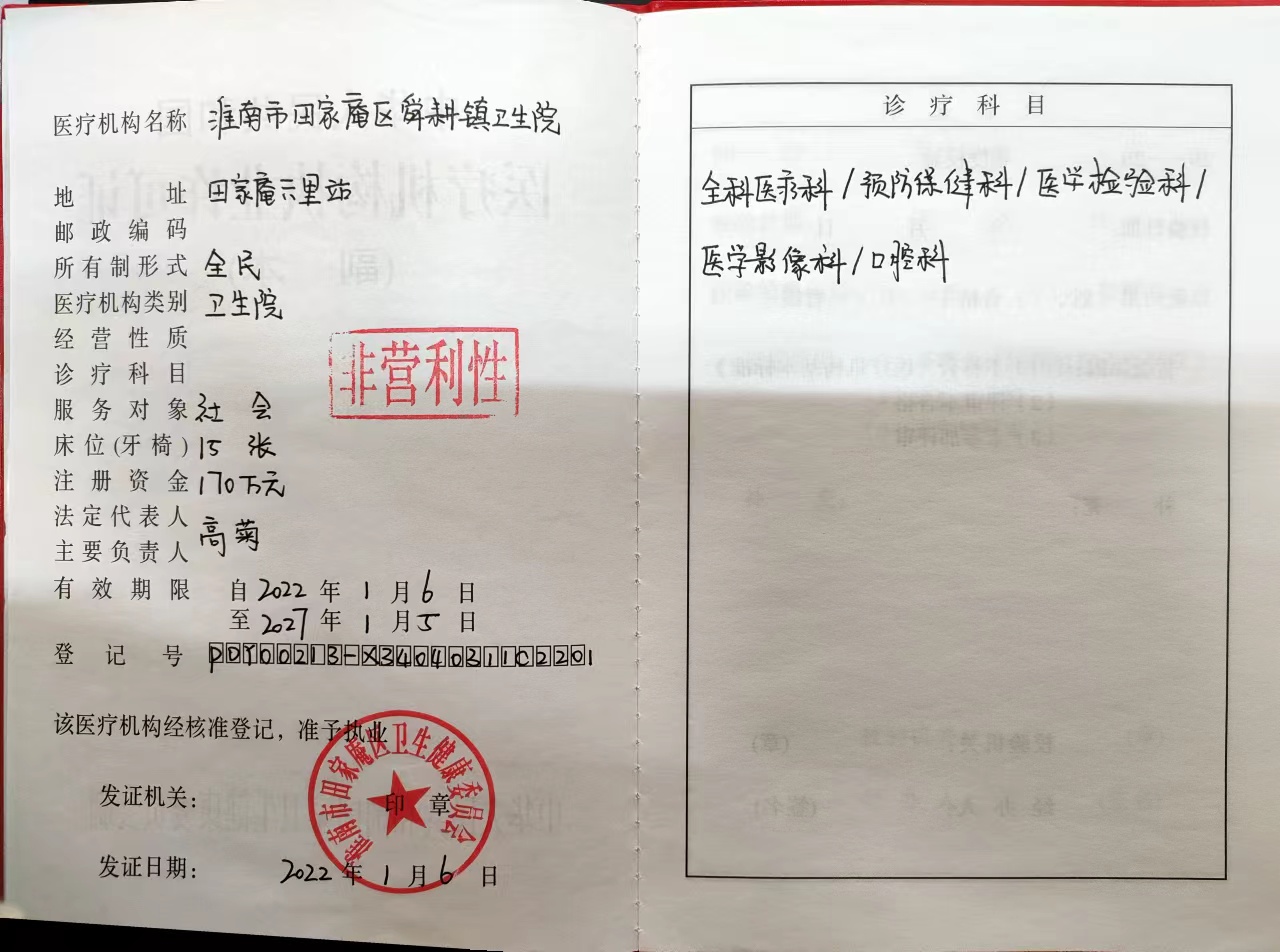 医疗机构名称 淮南市田家庵区舜耕镇卫生院
地址 田家庵六里站
邮政编码
所有制形式 全民
医疗机构类别 卫生院
经营性质
非营利性
诊疗科目
服务对象 社会
床位(牙椅) 15 张
注册资金 170万元
法定代表人
高菊
主要负责人
有效期限 自 2022 年 1 月 6 日
至 2027 年 1 月 5 日
登记号 PDY00213-X34040311C2201
该医疗机构经核准登记，准予执业
淮南市田家庵区卫生健康委员会
发证机关： 印 章
发证日期： 2022 年 1 月 6 日
诊疗科目
全科医疗科/预防保健科/医学检验科/
医学影像科/口腔科